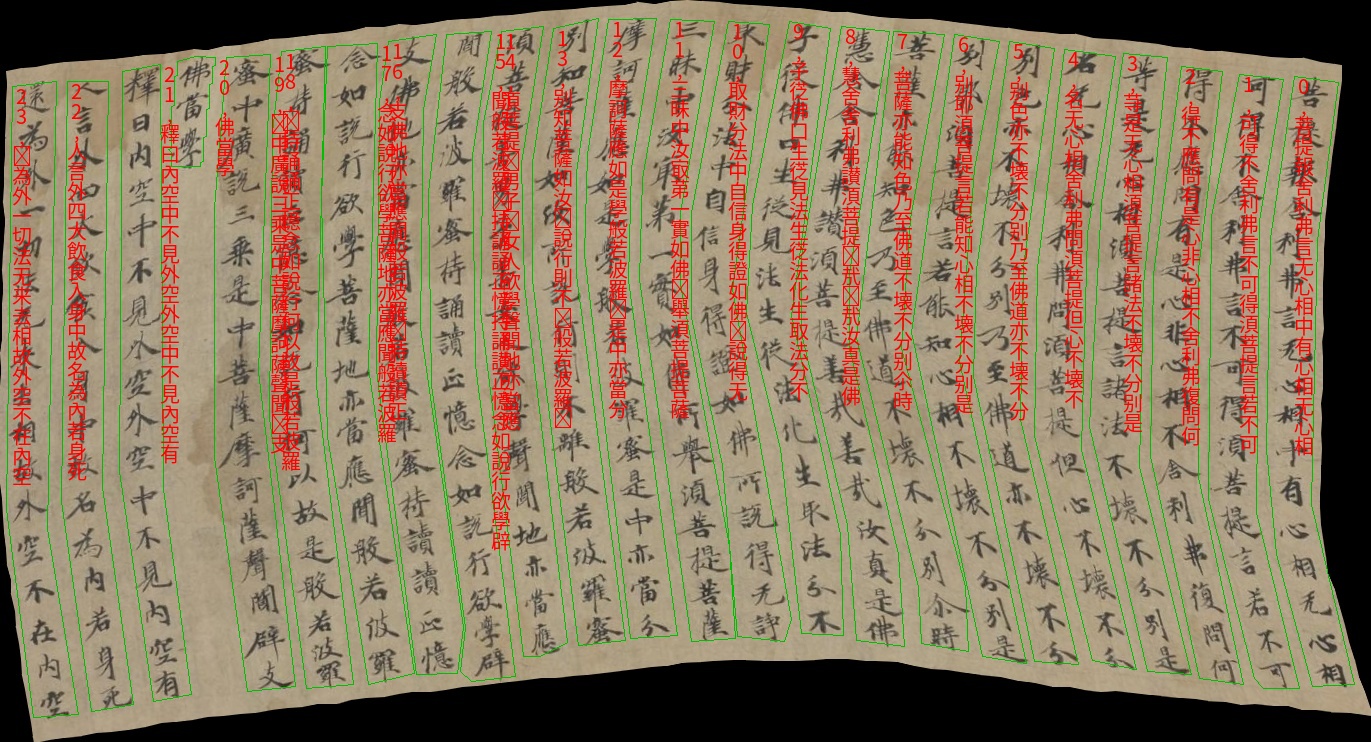 菩提報舍利弗言无心相中有心相无心相
可得不舍利弗言不可得湏菩提言若不可
得不應問有是心非心相不舍利弗復問何
等是无心相湏菩提言諸法不壞不分別是
名无心相舍利弗問湏菩提但心不壞不分
別色亦不壞不分別乃至佛道亦不壞不分
別耶湏菩提言若能知心相不壞不分別是
菩薩亦能知色乃至佛道不壞不分別尒時
慧命舍利弗讚湏菩提善哉善哉汝真是佛
子從佛口生從見法生從法化生取法分不
取財分法中自信身得證如佛所說得无諍
三昧中汝冣第一實如佛所舉湏菩提菩薩
摩訶薩應如是學般若波羅蜜是中亦當分
別知菩薩如汝所說行則不離般若波羅蜜
湏菩提善男子善女人欲學聲聞地亦當應
聞般若波羅蜜持誦讀正憶念如說行欲學辟
支佛地亦當應聞般若波羅蜜持讀誦正憶
念如說行欲學菩薩地亦當應聞般若波羅
蜜持誦讀正憶念如說行何以故是般若波羅
蜜中廣說三乘是中菩薩摩訶薩聲聞辟支
佛當學
釋曰內空中不見外空外空中不見內空有
人言外四大飲食入身中故名為內若身死
還為外一切法无來去相故外空不在內空